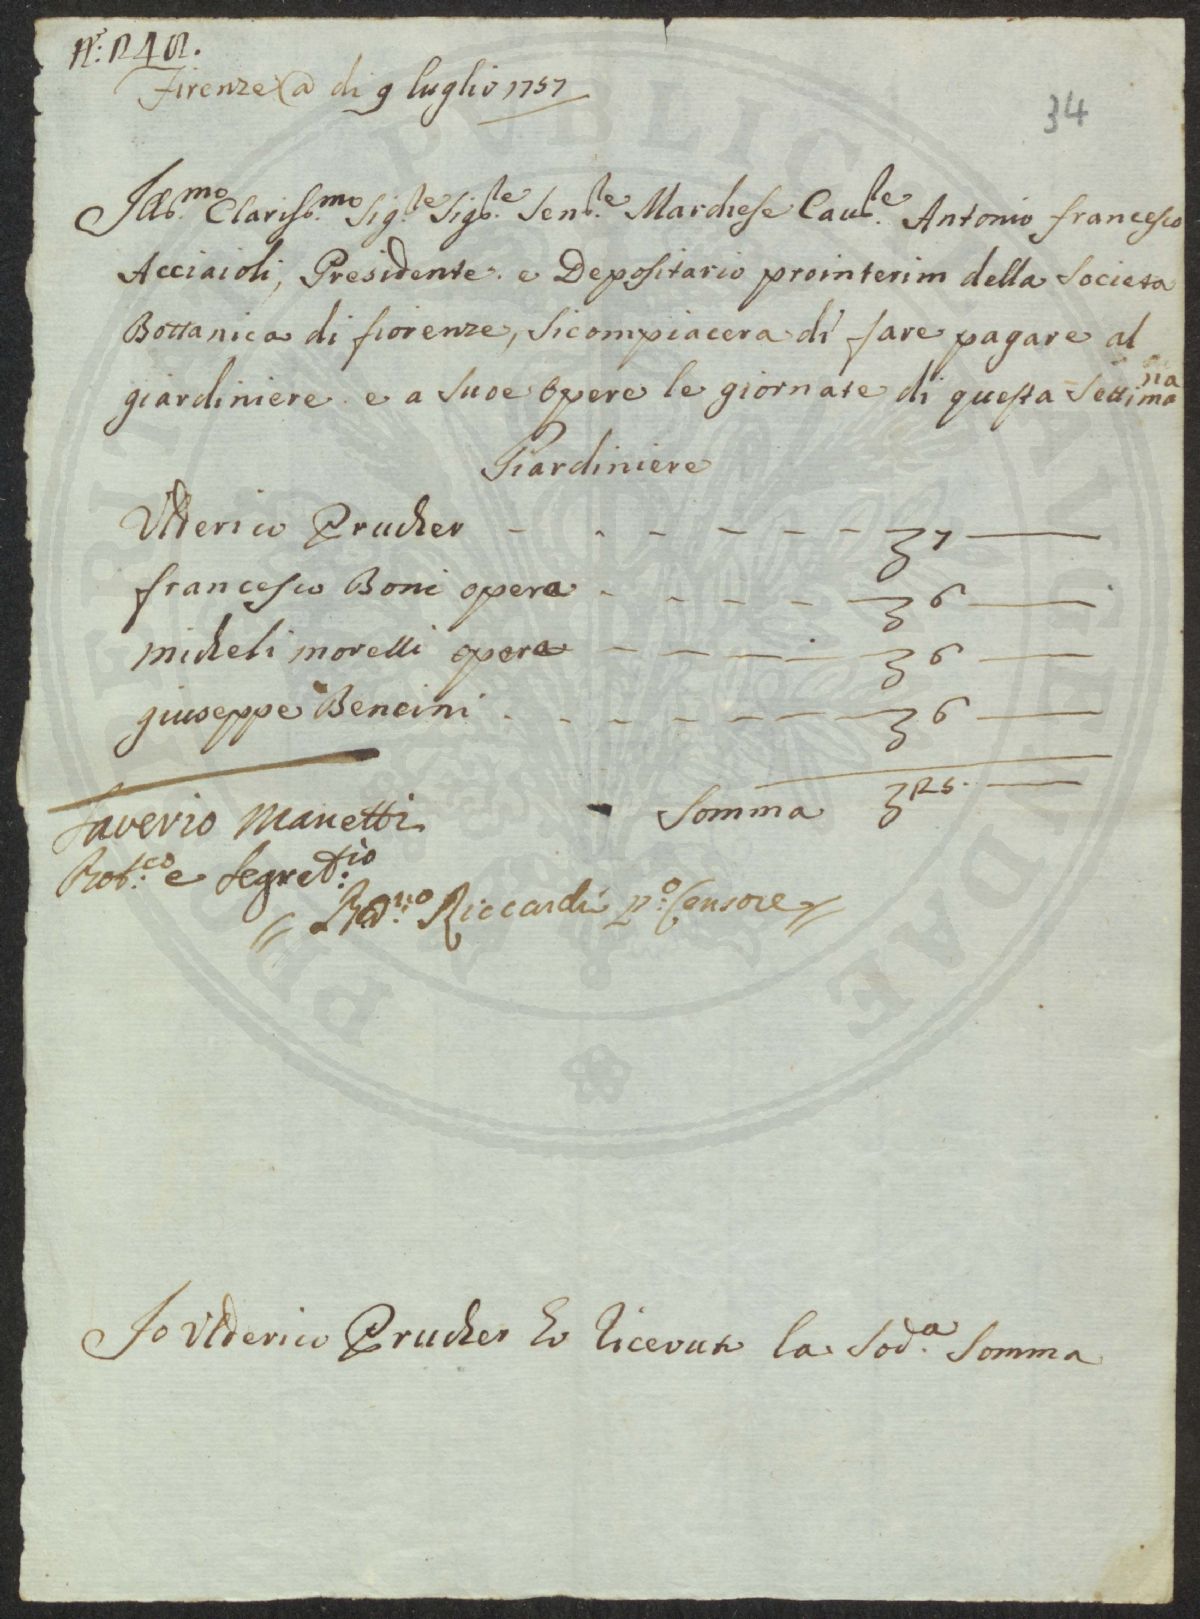 N.° 242.
Firenze @ di 9 luglio 1757
34
Ill.mo Clariss.mo Sig.re Sig.re Sen.re Marchese Cau.re Antonio francesco
Acciaioli, Presidente e Depositario prointerim della Societa
Bottanica di fiorenze, Sicompiacera di fare pagare al
giardiniere e a Suoe opere le giornate di questa Settimana
Giardiniere
Ulderico Prucher - - - - - - - 7 —
francesco Boni opera - - - - - 6 —
micheli morelli opera - - - - - 6 —
giuseppe Bencini - - - - - - - 6 —
Somma 25 —
Saverio Manetti
Bot.co e Segret.io
Riccardi p.o Censore
Io Ulderico Prucher ho Ricevuto la Sod.a Somma
PUBLICA